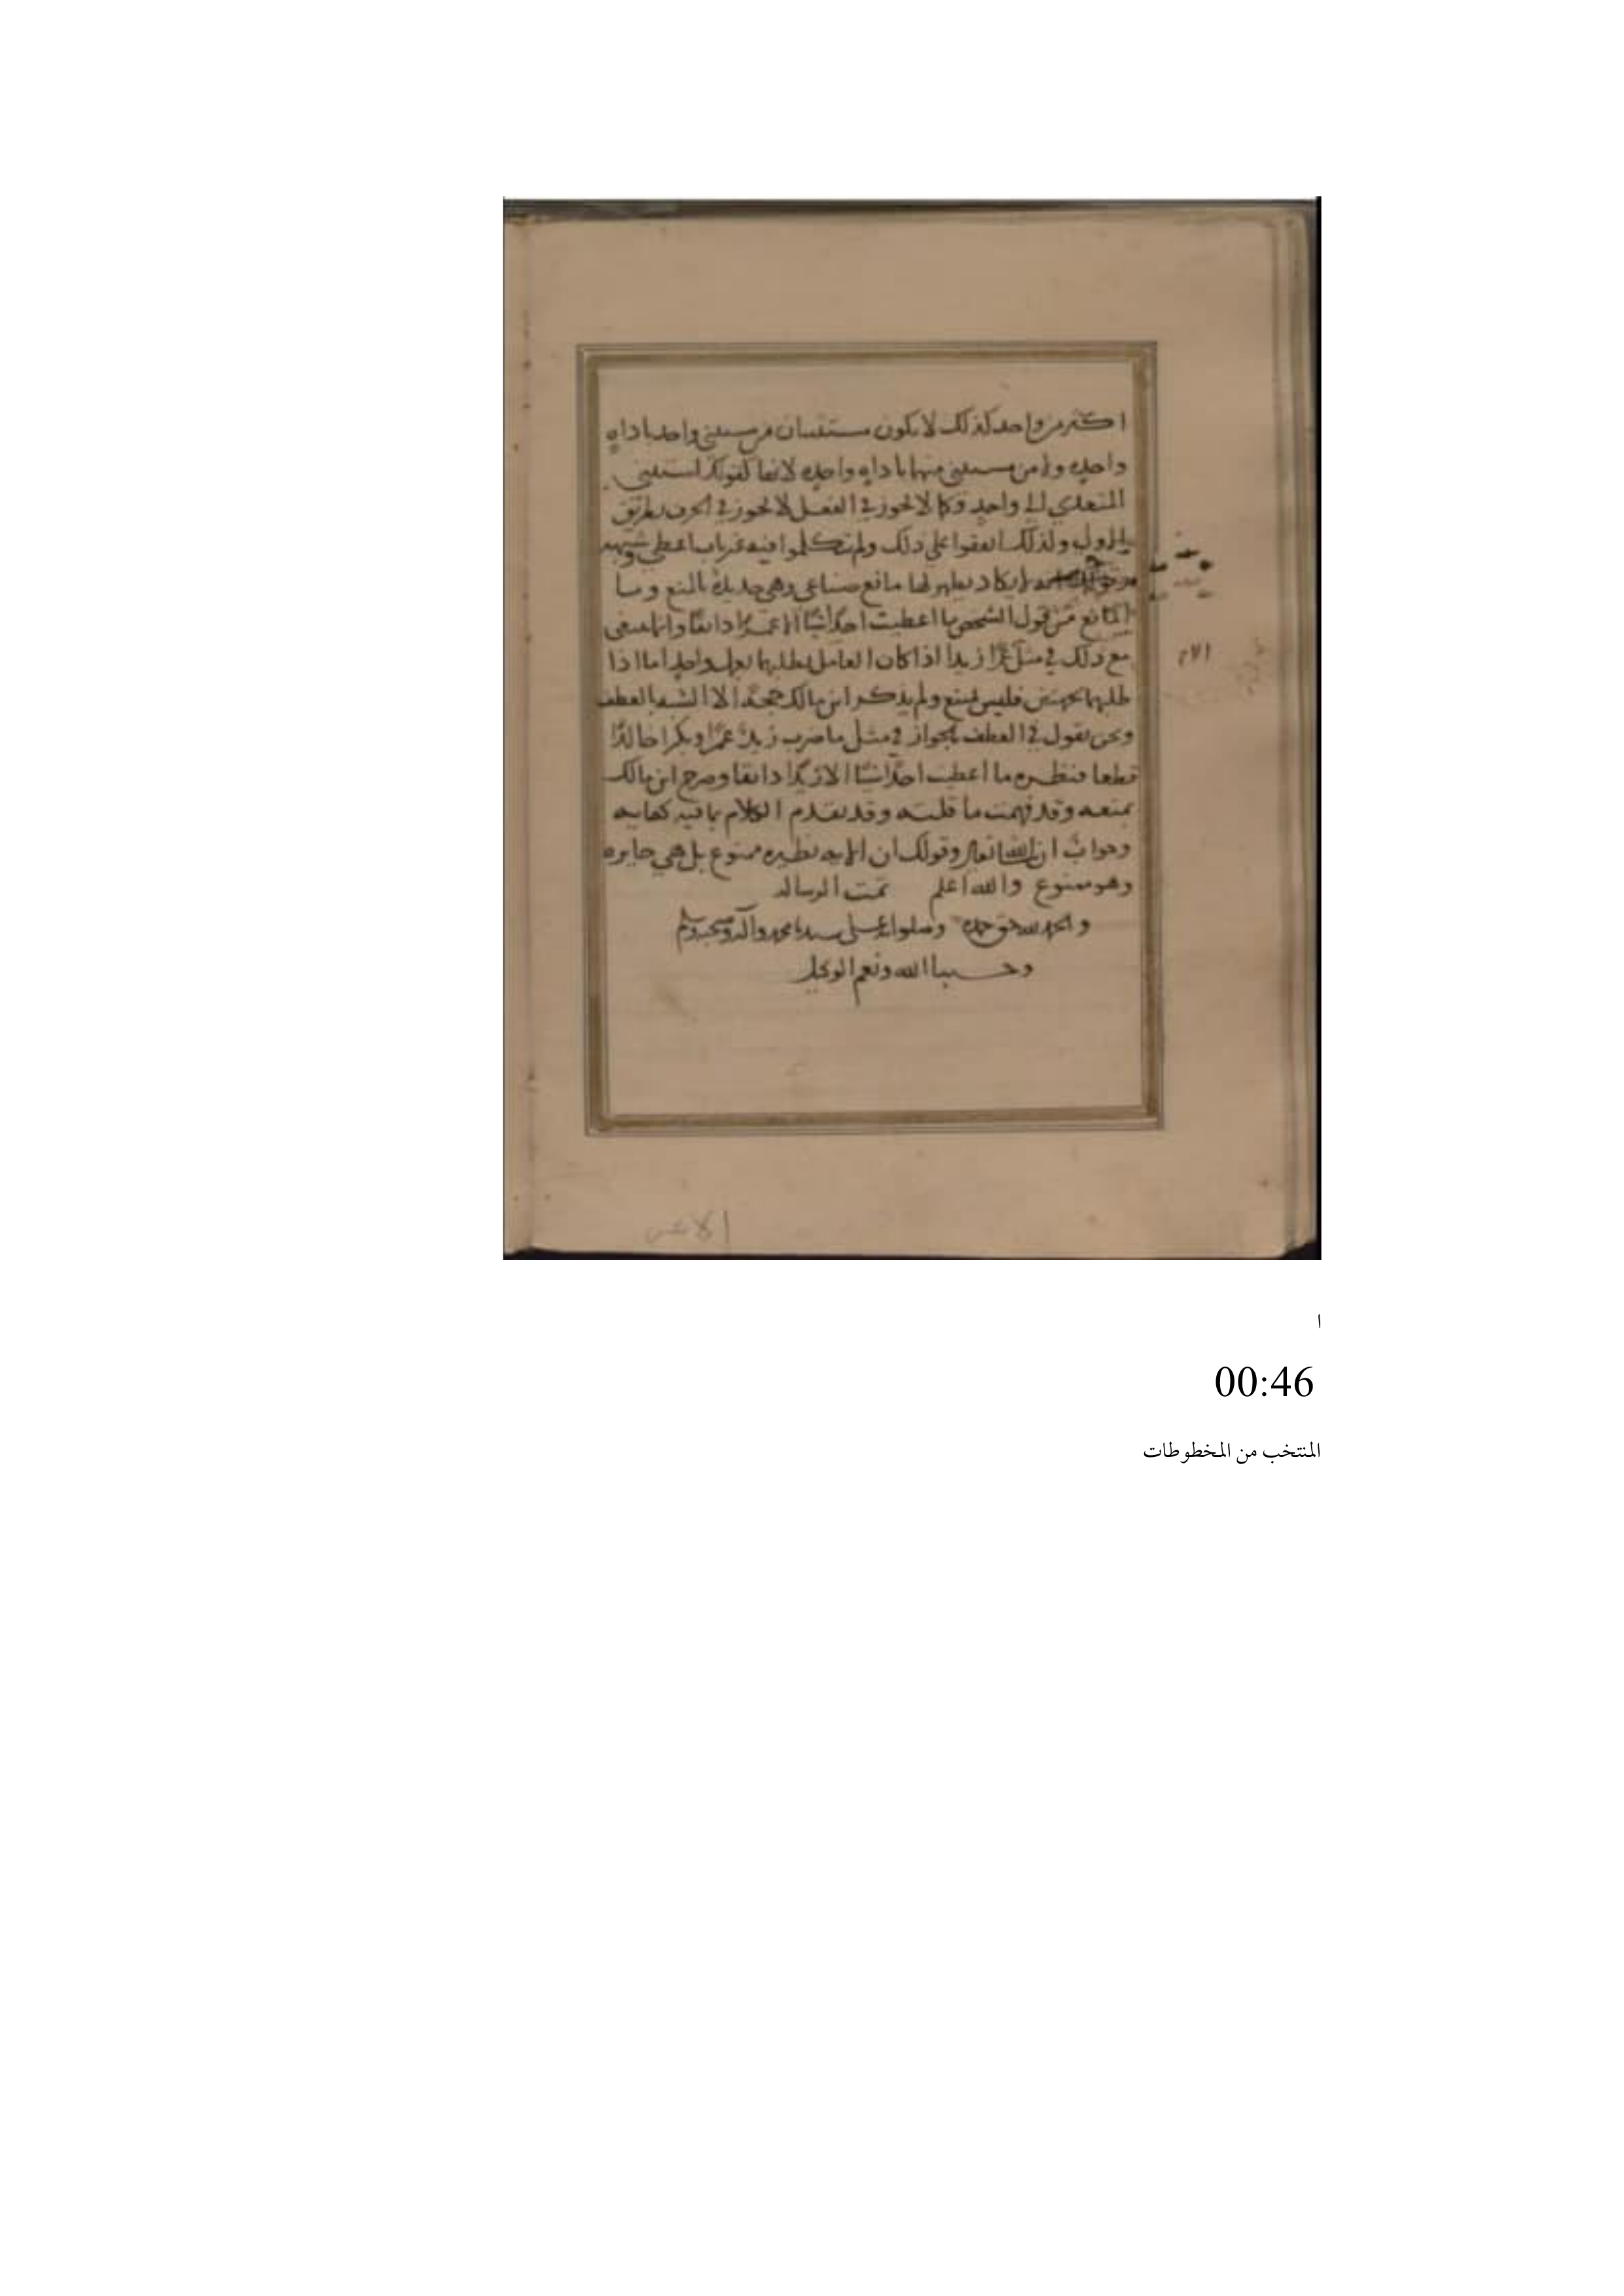 اكثر من واحد كذلك لا يكون مستثنيان من مستثنى واحد باداه
واحده ولا من مستثنى منهما باداه واحده لانها كقولك استثنى
المتعدي الى واحد وكما لا يجوز في الفعل لا يجوز في الحرف بطريق
الاول ولذلك اتفقوا على ذلك ولم يتكلموا فيه غير باب اعطى وشبهه
لا يكاد يظهر لها مانع صناعي وهي جديرة بالمنع وما
المانع من قول الشخص ما اعطيت احدًا شيئًا الا عمرًا دانقًا وانما ينبغي
مع ذلك في مثل عمرًا زيدا اذا كان العامل يطلبهما بعمل واحد اما اذا
طلبهما بجهتين فليس يمتنع ولم يذكر ابن مالك حجة الا الشبه بالعطف
ونحن نقول في العطف بالجواز في مثل ما ضرب زيدٌ عمرًا وبكر خالدًا
قطعا فنظيره ما اعطيت احدًا شيئًا الا زيدًا دانقا وصرح ابن مالك
بمنعه وقد فهمت ما قلته وقد تقدم الكلام بما فيه كفايه
وجواب ان شا الله تعالى وقولك ان الايه نظيره ممنوع بل هي جايزه
وهو ممنوع والله اعلم تمت الرساله
والحمد لله حق حمده وصلواته على سيدنا محمد وآله وصحبه وسلم
وحسبنا الله ونعم الوكيل
ا
00:46
المنتخب من المخطوطات